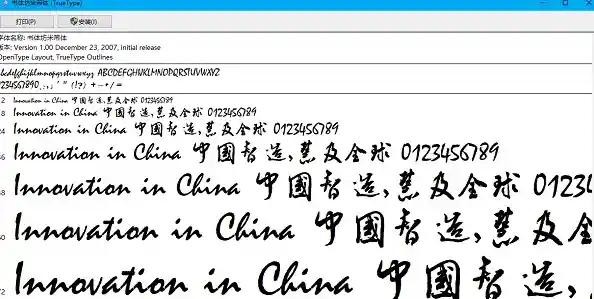 书体坊米芾体 (TrueType)
打印(P) 安装(I)
字体名称: 书体坊米芾体
版本: Version 1.00 December 23, 2007, initial release
OpenType Layout, TrueType Outlines
bcdefghijklmnopqrstuvwxyz ABCDEFGHIJKLMNOPQRSTUVWXYZ
1234567890.:,; ' " (!?) +-*/=
12 Innovation in China 中國智造,慧及全球 0123456789
18 Innovation in China 中國智造,慧及全球 0123456789
24 Innovation in China 中國智造,慧及全球 0123456789
36 Innovation in China 中國智造,慧及全球 0123456789
48 Innovation in China 中國智造,慧及全球 01234
60 Innovation in China 中國智造,慧及全
72 Innovation in China 中國智造,